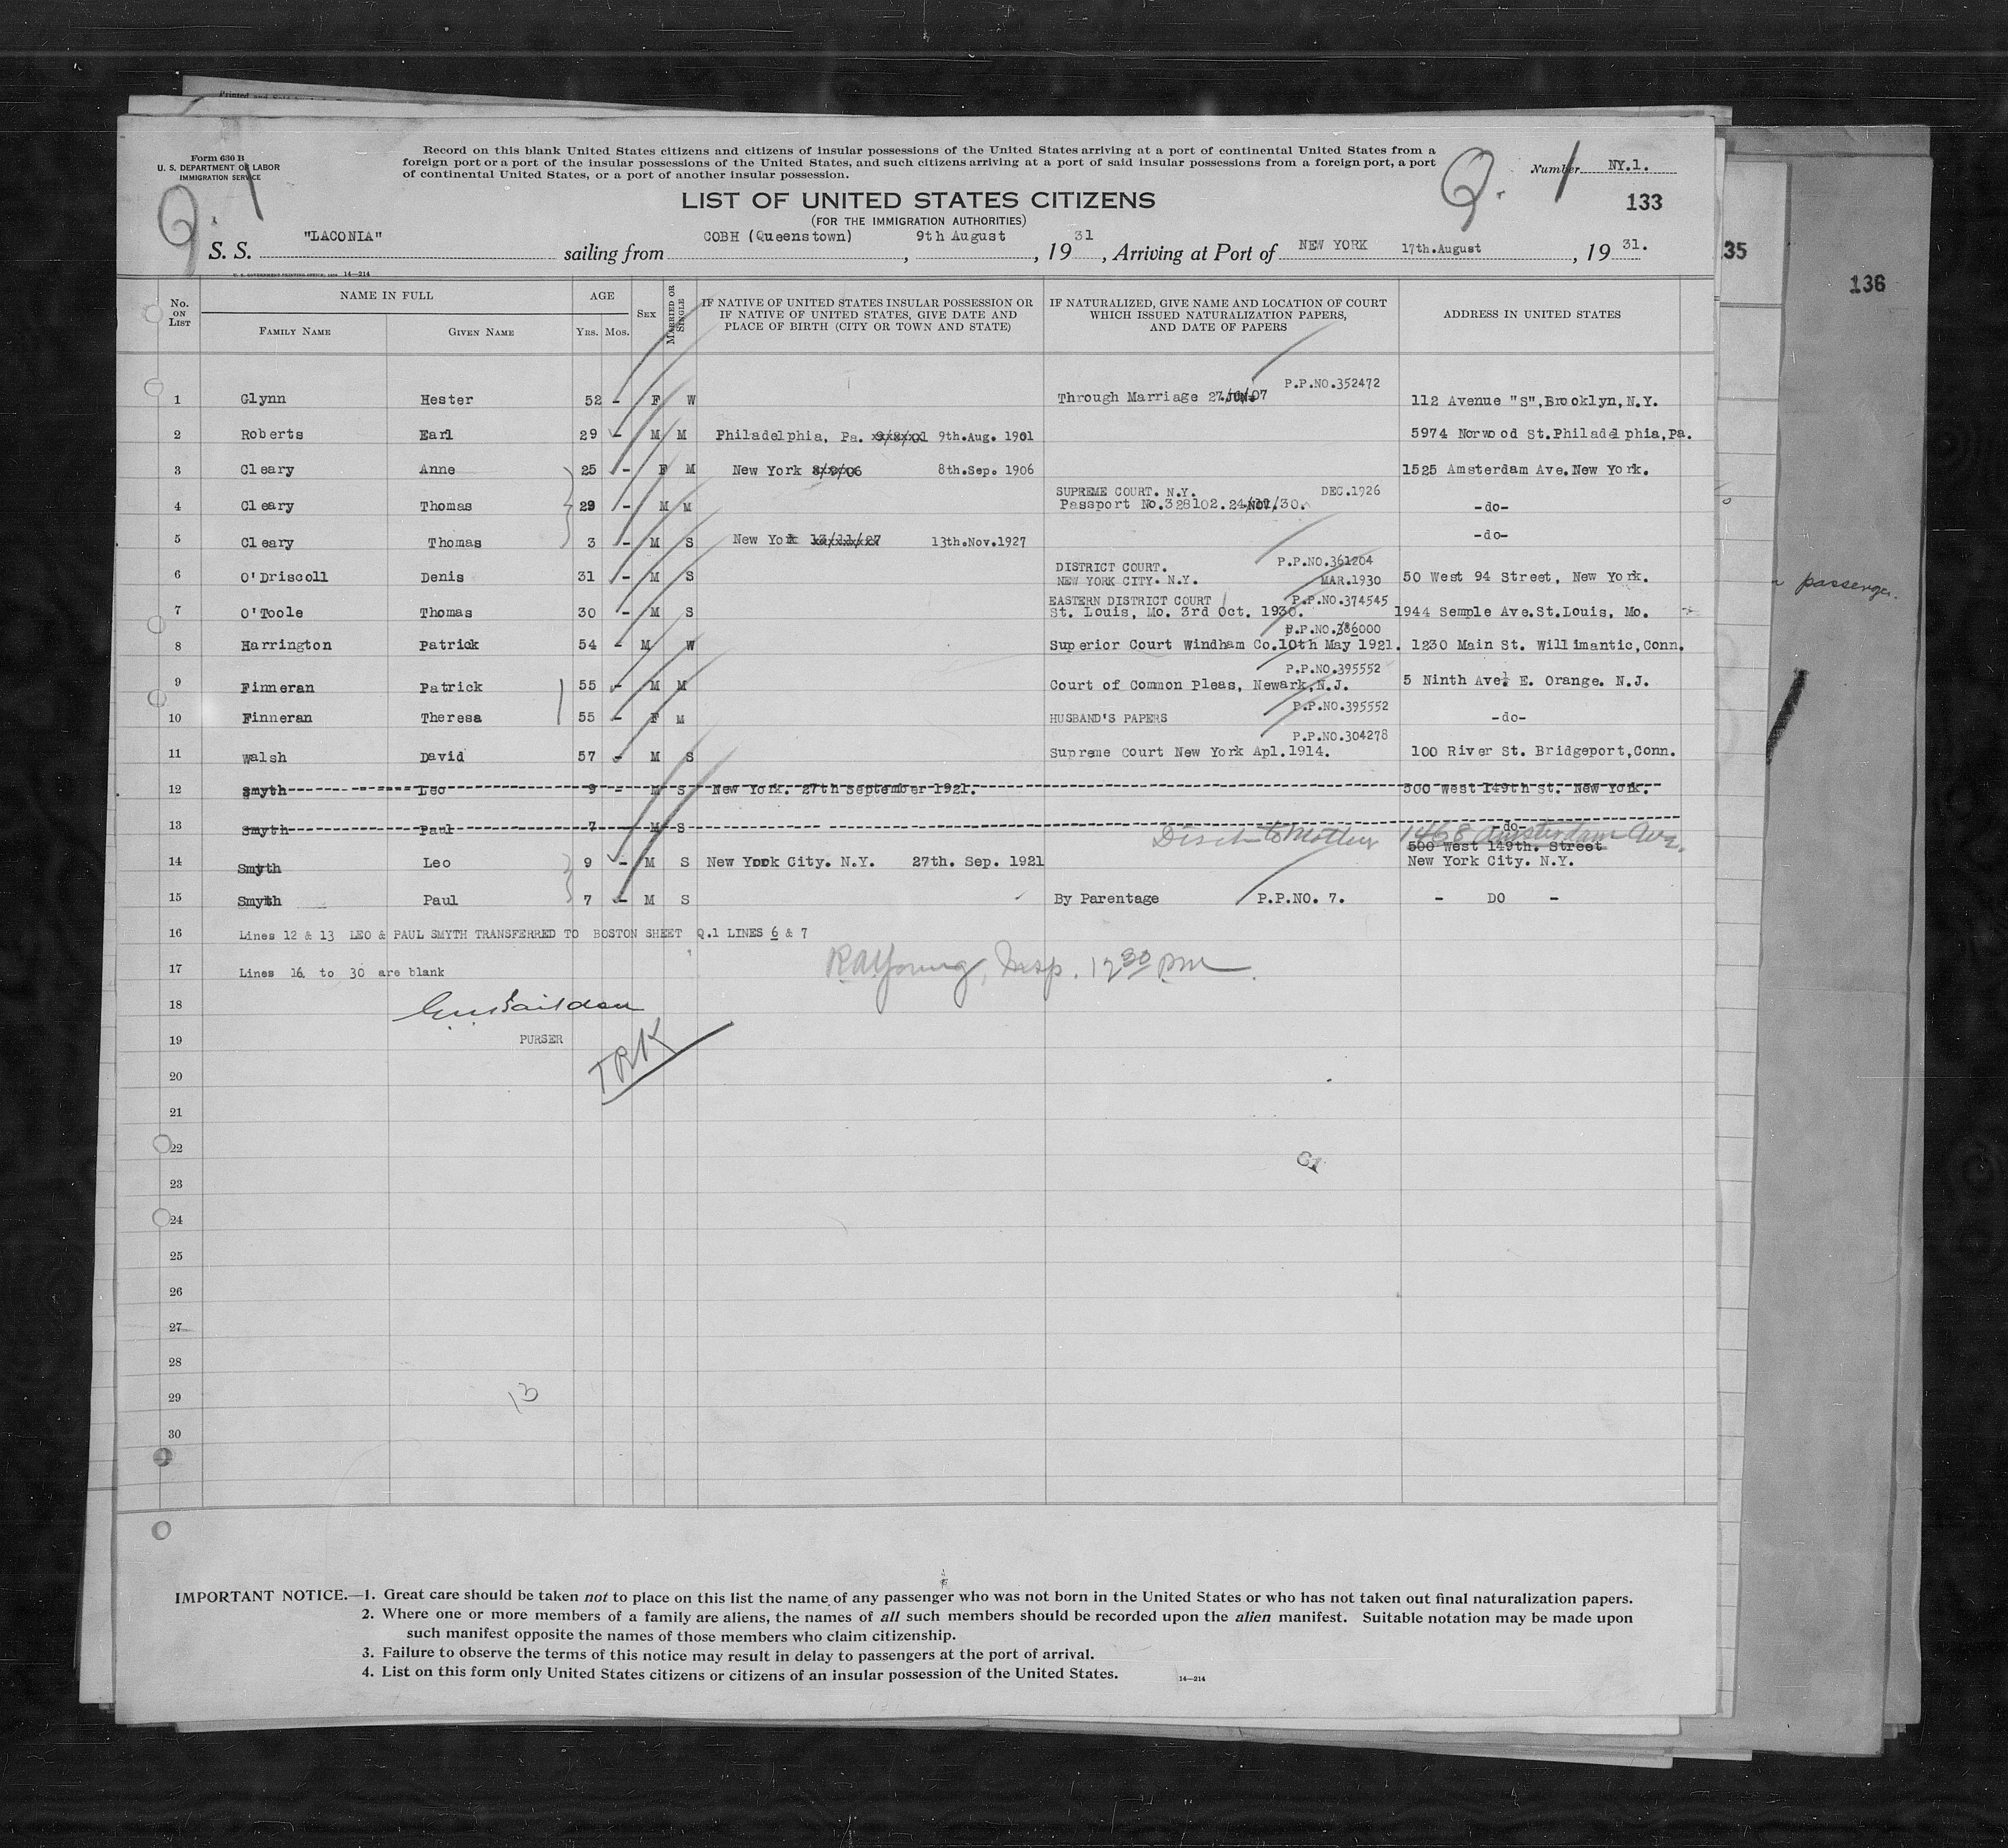 Printed and Sold
Form 630 B
U. S. DEPARTMENT OF LABOR
IMMIGRATION SERVICE
Q. 1
Record on this blank United States citizens and citizens of insular possessions of the United States arriving at a port of continental United States from a
foreign port or a port of the insular possessions of the United States, and such citizens arriving at a port of said insular possessions from a foreign port, a port
of continental United States, or a port of another insular possession.
Q. 1
Number NY.1.
133
LIST OF UNITED STATES CITIZENS
(FOR THE IMMIGRATION AUTHORITIES)
S. S. "LACONIA" sailing from COBH (Queenstown) , 9th August , 19 31 , Arriving at Port of NEW YORK 17th.August , 19 31.
U. S. GOVERNMENT PRINTING OFFICE: 14—214
35
136
No. ON LIST
NAME IN FULL
FAMILY NAME
GIVEN NAME
AGE
YRS. MOS.
SEX
MARRIED OR SINGLE
IF NATIVE OF UNITED STATES INSULAR POSSESSION OR
IF NATIVE OF UNITED STATES, GIVE DATE AND
PLACE OF BIRTH (CITY OR TOWN AND STATE)
IF NATURALIZED, GIVE NAME AND LOCATION OF COURT
WHICH ISSUED NATURALIZATION PAPERS,
AND DATE OF PAPERS
ADDRESS IN UNITED STATES
P.P.NO.352472
1 Glynn Hester 52 - F W Through Marriage 27/ /07 112 Avenue "S",Brooklyn,N.Y.
2 Roberts Earl 29 - M M Philadelphia, Pa. 9/8/01 9th.Aug. 1901 5974 Norwood St.Philadelphia,Pa.
3 Cleary Anne 25 - F M New York 8/9/06 8th.Sep. 1906 1525 Amsterdam Ave.New York.
SUPREME COURT. N.Y. DEC.1926
4 Cleary Thomas 29 - M M Passport No.328102.24/NOV/30. -do-
5 Cleary Thomas 3 - M S New York 13/11/27 13th.Nov.1927 -do-
DISTRICT COURT. P.P.NO.361204
6 O'Driscoll Denis 31 - M S NEW YORK CITY. N.Y. MAR.1930 50 West 94 Street, New York.
EASTERN DISTRICT COURT P.P.NO.374545
7 O'Toole Thomas 30 - M S St. Louis, Mo. 3rd Oct. 1930. 1944 Semple Ave.St.Louis, Mo.
P.P.NO.386000
8 Harrington Patrick 54 - M W Superior Court Windham Co.10th May 1921. 1230 Main St. Willimantic,Conn.
P.P.NO.395552
9 Finneran Patrick 55 - M M Court of Common Pleas, Newark,N.J. 5 Ninth Ave. E. Orange. N.J.
P.P.NO.395552
10 Finneran Theresa 55 - F M HUSBAND'S PAPERS -do-
P.P.NO.304278
11 Walsh David 57 - M S Supreme Court New York Apl.1914. 100 River St. Bridgeport,Conn.
12 Smyth Leo 9 - M S New York. 27th September 1921. 500 West 149th St. New York.
13 Smyth Paul 7 - M S -do-
Disch to Mother 1468 Amsterdam Ave.
500 West 149th. Street
14 Smyth Leo 9 - M S New York City. N.Y. 27th. Sep. 1921 New York City. N.Y.
15 Smyth Paul 7 - M S By Parentage P.P.NO. 7. - DO -
16 Lines 12 & 13 LEO & PAUL SMYTH TRANSFERRED TO BOSTON SHEET Q.1 LINES 6 & 7
17 Lines 16 to 30 are blank
RAYoung, Insp. 12 30 pm
18
19 PURSER
TRK
20
21
22
23
24
25
26
27
28
29
13
30
passenger.
IMPORTANT NOTICE.—1. Great care should be taken not to place on this list the name of any passenger who was not born in the United States or who has not taken out final naturalization papers.
2. Where one or more members of a family are aliens, the names of all such members should be recorded upon the alien manifest. Suitable notation may be made upon
such manifest opposite the names of those members who claim citizenship.
3. Failure to observe the terms of this notice may result in delay to passengers at the port of arrival.
4. List on this form only United States citizens or citizens of an insular possession of the United States.
14—214